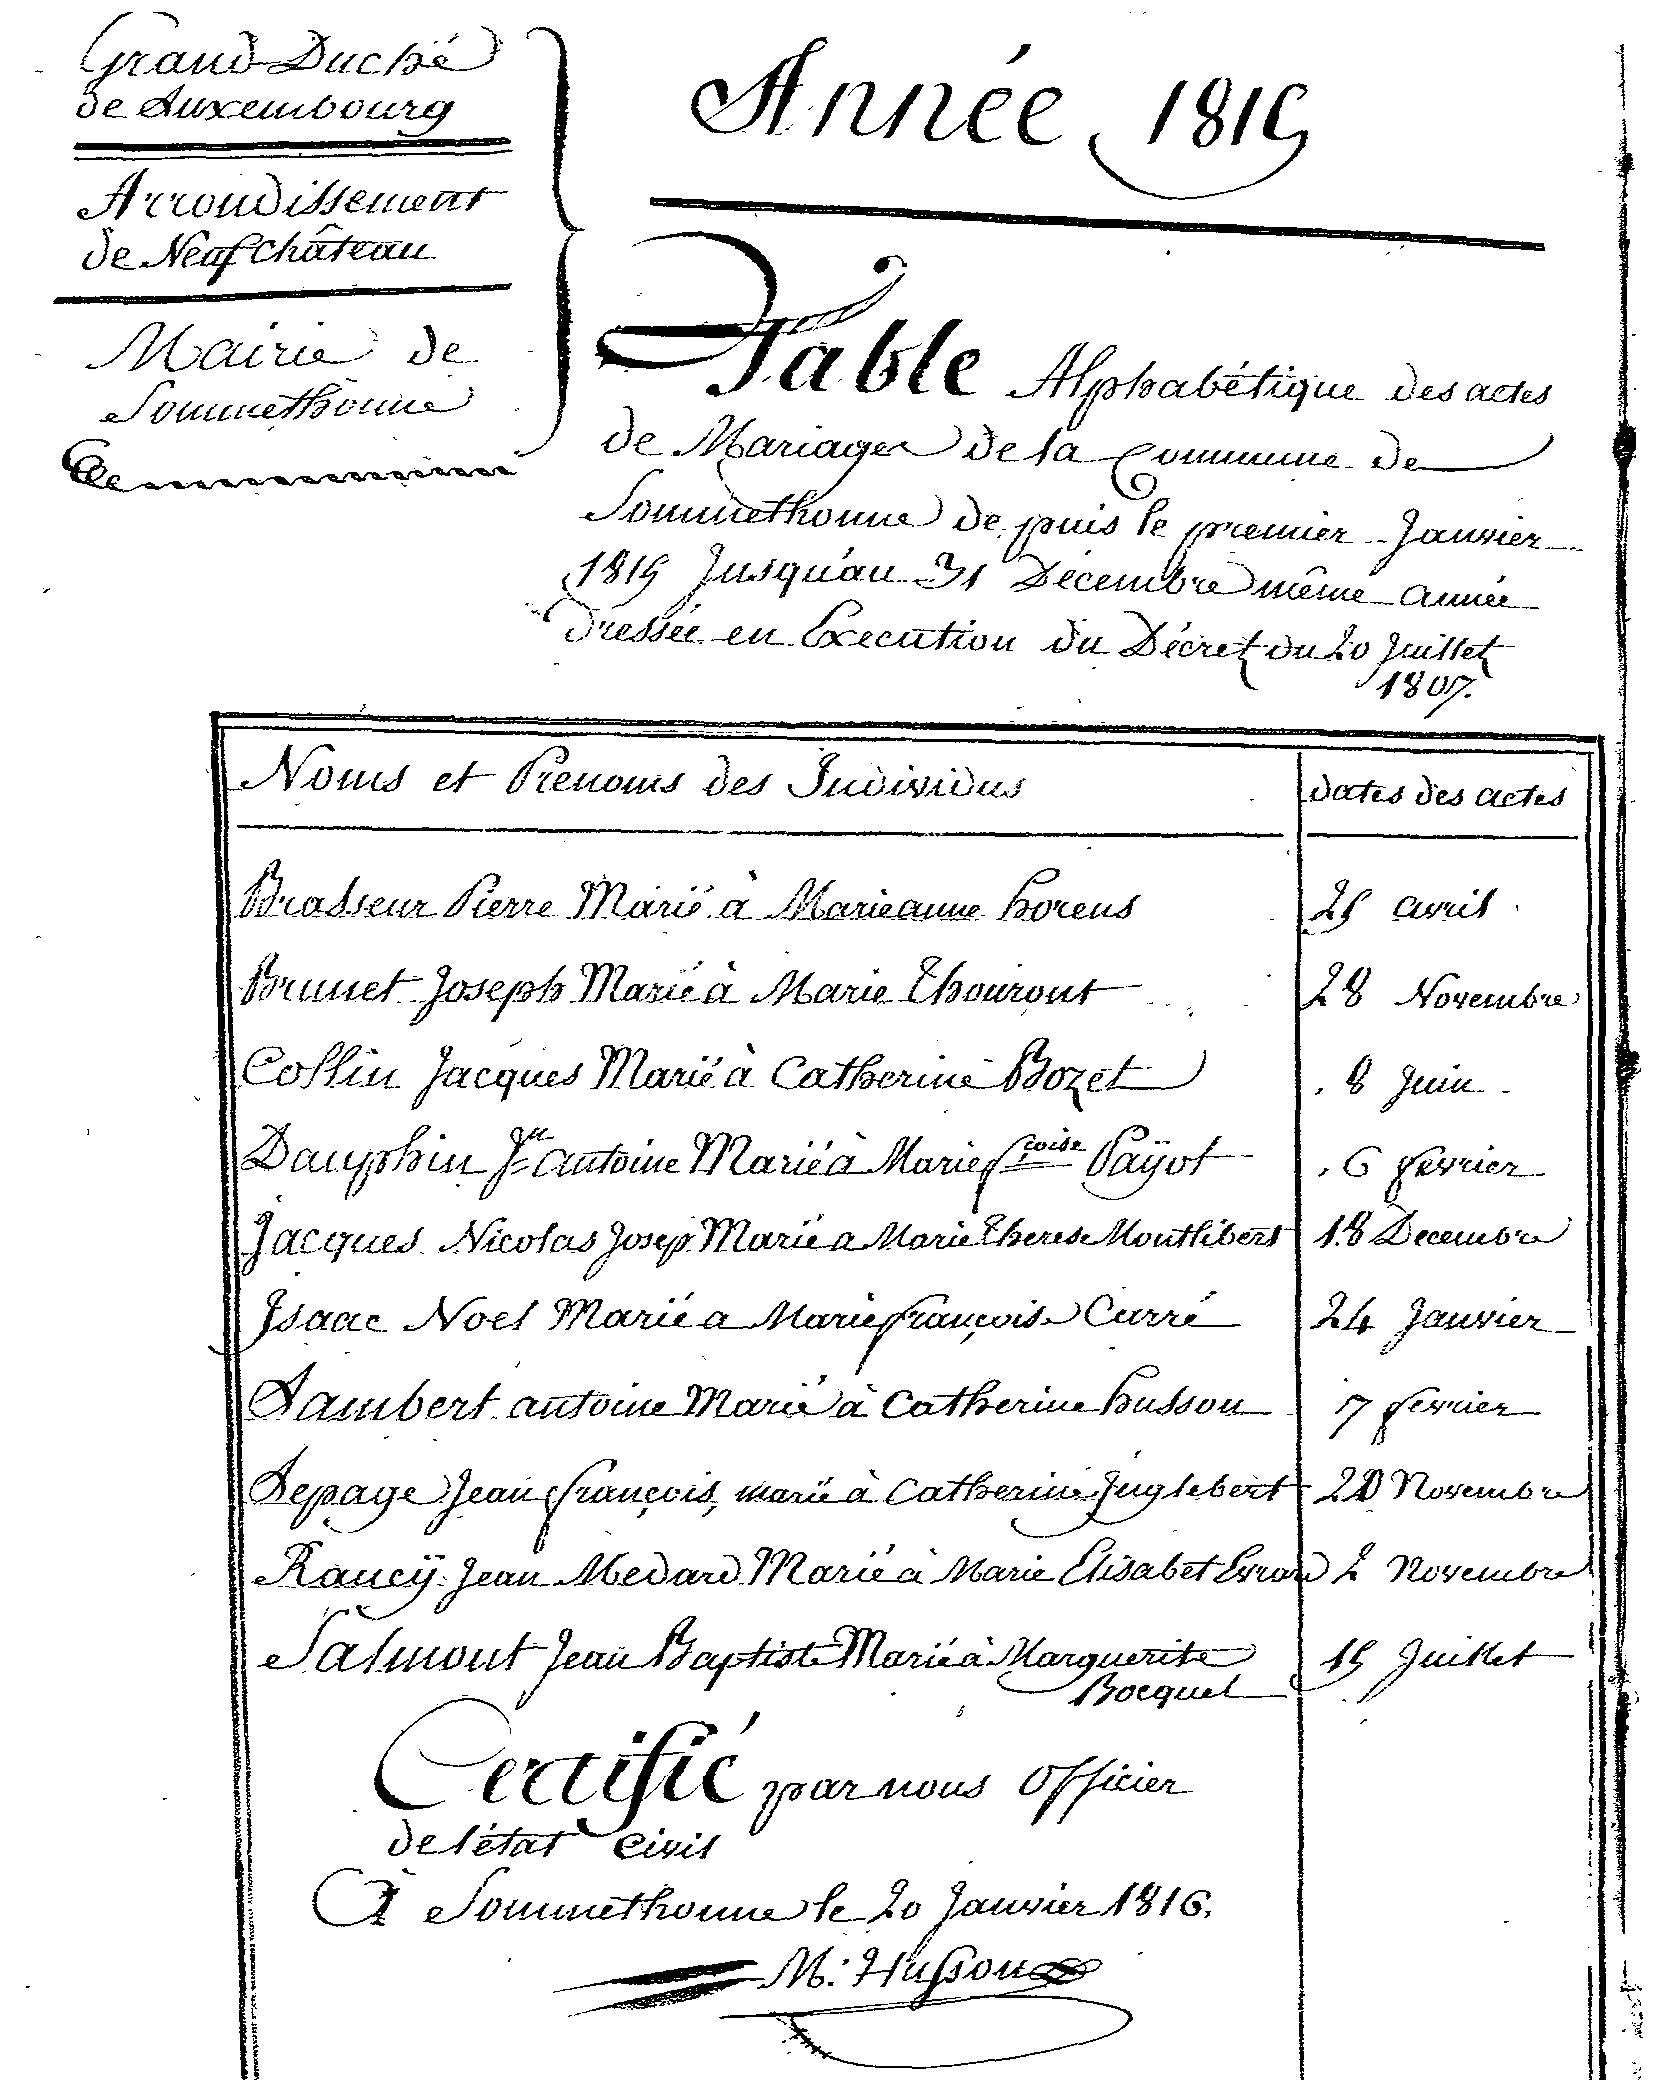 Grand Duché
de Luxembourg
Arrondissement
de Neufchâteau
Mairie de
Sommethonne
Année 1815
Table Alphabétique des actes
de Mariages de la Commune de
Sommethonne de puis le premier Janvier
1815 Jusqu'au 31 Décembre même année
Dressée en Execution du Décret du 20 Juillet
1807.
Noms et Prenoms des Individus dates des actes
Brasseur Pierre Marié à Marieanne horens 25 avril
Brunet Joseph Marié à Marie Thouront 28 Novembre
Collin Jacques Marié à Catherine Bozet 8 Juin
Dauphin Jn antoine Marié à Marie fçoise Payot 6 fevrier
Jacques Nicolas Josep Marié a Marie Therese Montlibert 18 Decembre
Isaac Noel Marié a Marie françoise Curré 24 Janvier
Lambert antoine Marié à Catherine husson 7 fevrier
Lepage Jean françois, marié à Catherine Juglebert Novembre
Rancÿ Jean Medard Marié à Marie Elisabet Evrard 2 Novembre
Salmont Jean Baptiste Marié à Marguerite 15 Juillet
Bocquet
Certifié par nous Officier
de l'état civil
A Sommethonne le 20 Janvier 1816.
M: Husson